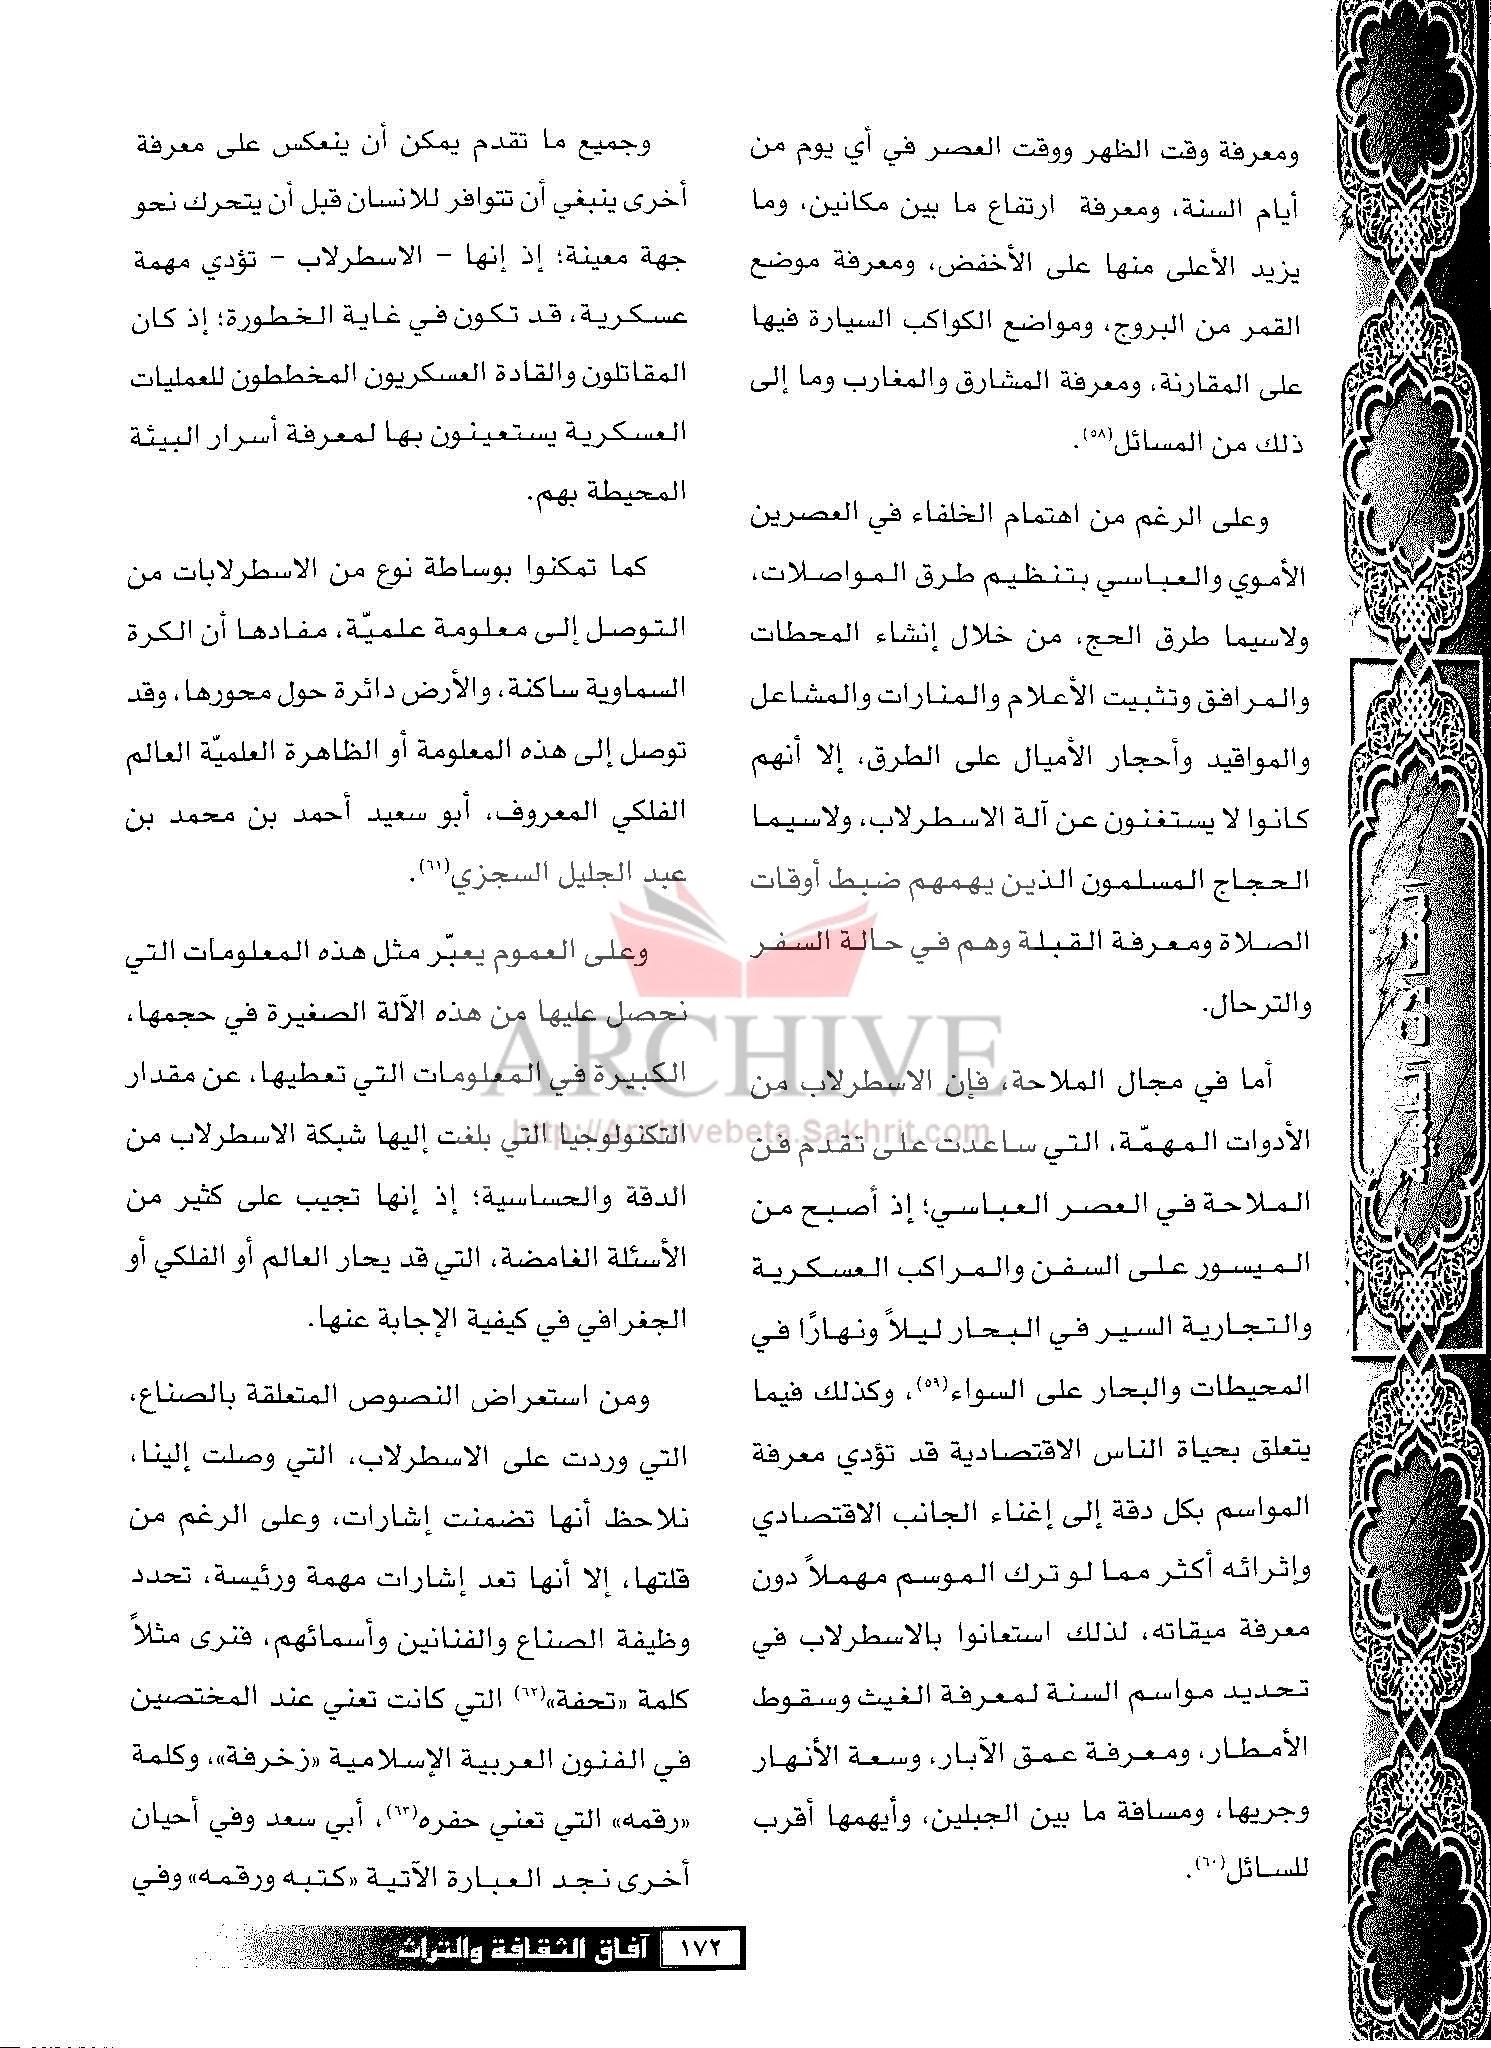 ومعرفة وقت الظهر ووقت العصر في أي يوم من
أيام السنة، ومعرفة ارتفاع ما بين مكانين، وما
يزيد الأعلى منها على الأخفض، ومعرفة موضع
القمر من البروج، ومواضع الكواكب السيارة فيها
على المقارنة، ومعرفة المشارق والمغارب وما إلى
ذلك من المسائل(٥٨).
وعلى الرغم من اهتمام الخلفاء في العصرين
الأموي والعباسي بتنظيم طرق المواصلات،
ولاسيما طرق الحج، من خلال إنشاء المحطات
والمرافق وتثبيت الأعلام والمنارات والمشاعل
والمواقيد وأحجار الأميال على الطرق، إلا أنهم
كانوا لا يستغنون عن آلة الاسطرلاب، ولاسيما
الحجاج المسلمون الذين يهمهم ضبط أوقات
الصلاة ومعرفة القبلة وهم في حالة السفر
والترحال.
أما في مجال الملاحة، فإن الاسطرلاب من
الأدوات المهمّة، التي ساعدت على تقدم فن
الملاحة في العصر العباسي؛ إذ أصبح من
الميسور على السفن والمراكب العسكرية
والتجارية السير في البحار ليلاً ونهارًا في
المحيطات والبحار على السواء(٥٩)، وكذلك فيما
يتعلق بحياة الناس الاقتصادية قد تؤدي معرفة
المواسم بكل دقة إلى إغناء الجانب الاقتصادي
وإثرائه أكثر مما لو ترك الموسم مهملاً دون
معرفة ميقاته، لذلك استعانوا بالاسطرلاب في
تحديد مواسم السنة لمعرفة الغيث وسقوط
الأمطار، ومعرفة عمق الآبار، وسعة الأنهار
وجريها، ومسافة ما بين الجبلين، وأيهمها أقرب
للسائل(٦٠).
وجميع ما تقدم يمكن أن ينعكس على معرفة
أخرى ينبغي أن تتوافر للانسان قبل أن يتحرك نحو
جهة معينة؛ إذ إنها - الاسطرلاب - تؤدي مهمة
عسكرية، قد تكون في غاية الخطورة؛ إذ كان
المقاتلون والقادة العسكريون المخططون للعمليات
العسكرية يستعينون بها لمعرفة أسرار البيئة
المحيطة بهم.
كما تمكنوا بوساطة نوع من الاسطرلابات من
التوصل إلى معلومة علميّة، مفادها أن الكرة
السماوية ساكنة، والأرض دائرة حول محورها، وقد
توصل إلى هذه المعلومة أو الظاهرة العلميّة العالم
الفلكي المعروف، أبو سعيد أحمد بن محمد بن
عبد الجليل السجزي(٦١).
وعلى العموم يعبّر مثل هذه المعلومات التي
نحصل عليها من هذه الآلة الصغيرة في حجمها،
الكبيرة في المعلومات التي تعطيها، عن مقدار
التكنولوجيا التي بلغت إليها شبكة الاسطرلاب من
الدقة والحساسية؛ إذ إنها تجيب على كثير من
الأسئلة الغامضة، التي قد يحار العالم أو الفلكي أو
الجغرافي في كيفية الإجابة عنها.
ومن استعراض النصوص المتعلقة بالصناع،
التي وردت على الاسطرلاب، التي وصلت إلينا،
نلاحظ أنها تضمنت إشارات، وعلى الرغم من
قلتها، إلا أنها تعد إشارات مهمة ورئيسة، تحدد
وظيفة الصناع والفنانين وأسمائهم، فنرى مثلاً
كلمة «تحفة»(٦٢) التي كانت تعني عند المختصين
في الفنون العربية الإسلامية «زخرفة»، وكلمة
«رقمه» التي تعني حفره(٦٣)، أبي سعد وفي أحيان
أخرى نجد العبارة الآتية «كتبه ورقمه» وفي
ARCHIVE
http://Archivebeta.Sakhrit.com
١٧٢ آفاق الثقافة والتراث